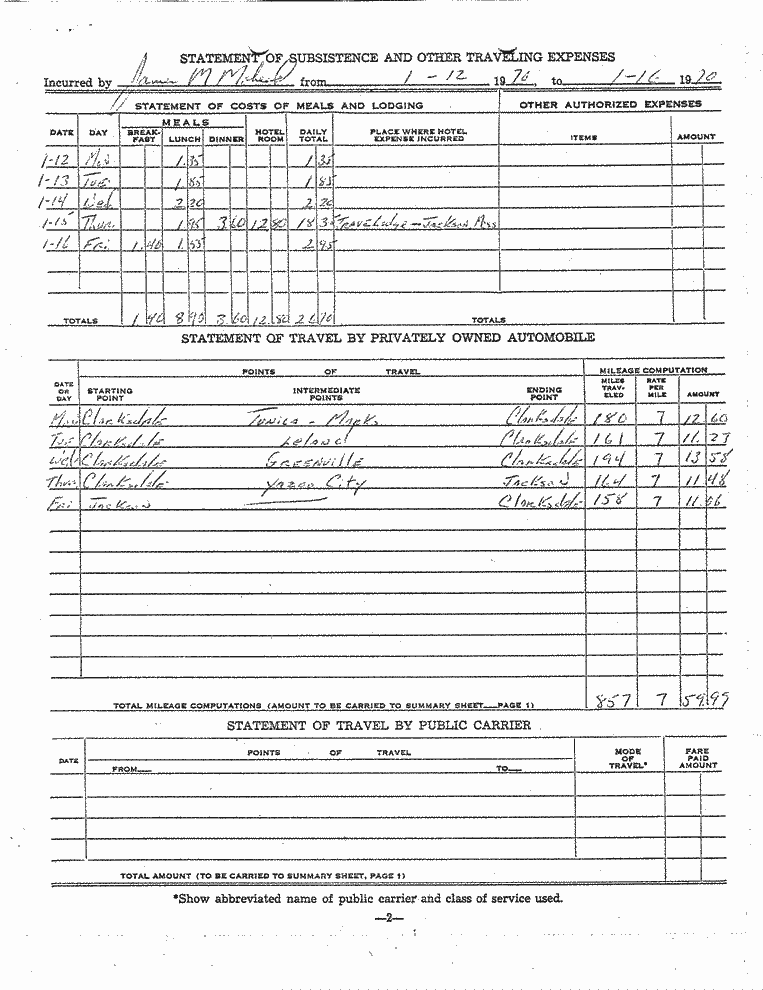 STATEMENT OF SUBSISTENCE AND OTHER TRAVELING EXPENSES
Incurred by James M from 1 - 12 1970, to 1-16 1970
STATEMENT OF COSTS OF MEALS AND LODGING OTHER AUTHORIZED EXPENSES
MEALS
DATE DAY BREAK-FAST LUNCH DINNER HOTEL ROOM DAILY TOTAL PLACE WHERE HOTEL EXPENSE INCURRED ITEMS AMOUNT
1-12 Mon 1 35 1 35
1-13 Tue 1 85 1 85
1-14 Wed 2 20 2 20
1-15 Thur. 1 95 3 60 12 80 18 35 TraveLodge - Jackson, Miss
1-16 Fri 1.40 1.55 2 95
TOTALS 1 40 8 90 3 60 12.80 26 70 TOTALS
STATEMENT OF TRAVEL BY PRIVATELY OWNED AUTOMOBILE
POINTS OF TRAVEL MILEAGE COMPUTATION
DATE OR DAY STARTING POINT INTERMEDIATE POINTS ENDING POINT MILES TRAV-ELED RATE PER MILE AMOUNT
Mon Clarksdale Tunica - Marks Clarksdale 180 7 12 60
Tue Clarksdale Leland Clarksdale 161 7 11. 27
Wed Clarksdale Greenville Clarksdale 194 7 13 58
Thur Clarksdale Yazoo City Jackson 164 7 11 48
Fri Jackson Clarksdale 158 7 11.06
TOTAL MILEAGE COMPUTATIONS (AMOUNT TO BE CARRIED TO SUMMARY SHEET—PAGE 1) 857 7 59.99
STATEMENT OF TRAVEL BY PUBLIC CARRIER
DATE POINTS OF TRAVEL MODE OF TRAVEL* FARE PAID AMOUNT
FROM— TO—
TOTAL AMOUNT (TO BE CARRIED TO SUMMARY SHEET, PAGE 1)
*Show abbreviated name of public carrier and class of service used.
—2—